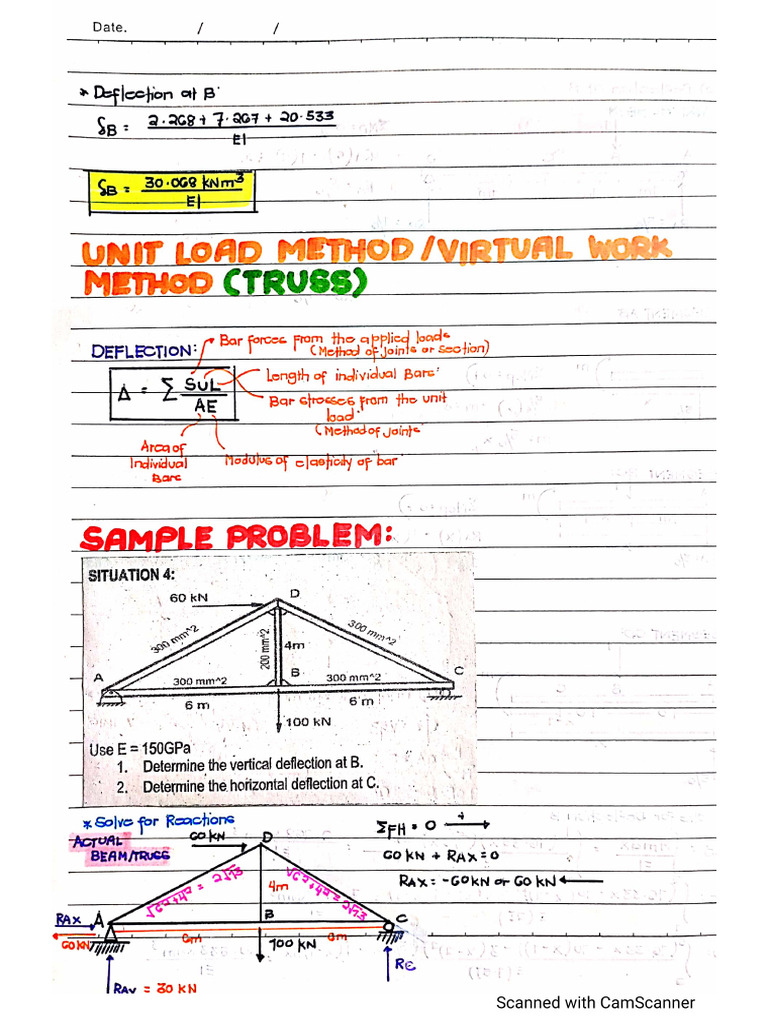 Date. / /
* Deflection at B:
δB = 2.268 + 7.267 + 20.533
EI
δB = 30.068 kNm³
EI
UNIT LOAD METHOD / VIRTUAL WORK
METHOD (TRUSS)
DEFLECTION:
Bar forces from the applied loads
(Method of joints or section)
Δ = Σ SUL
AE
Length of individual Bars
Bar stresses from the unit
load
(Method of joints
Area of
Individual
Bars
Modulus of elasticity of bar
SAMPLE PROBLEM:
SITUATION 4:
60 kN
D
300 mm^2
300 mm^2
200 mm^2
4m
A
B
C
300 mm^2
300 mm^2
6 m
6 m
100 kN
Use E = 150GPa
1. Determine the vertical deflection at B.
2. Determine the horizontal deflection at C.
* Solve for Reactions
ACTUAL
BEAM/TRUSS
60 KN
D
√6²+4² = 2√13
4m
√6²+4² = 2√13
RAX
A
B
C
60 KN
6m
6m
100 KN
RAV = 30 KN
RC
ΣFH = 0 +→
60 KN + RAX = 0
RAX = -60 KN or 60 KN ←
Scanned with CamScanner